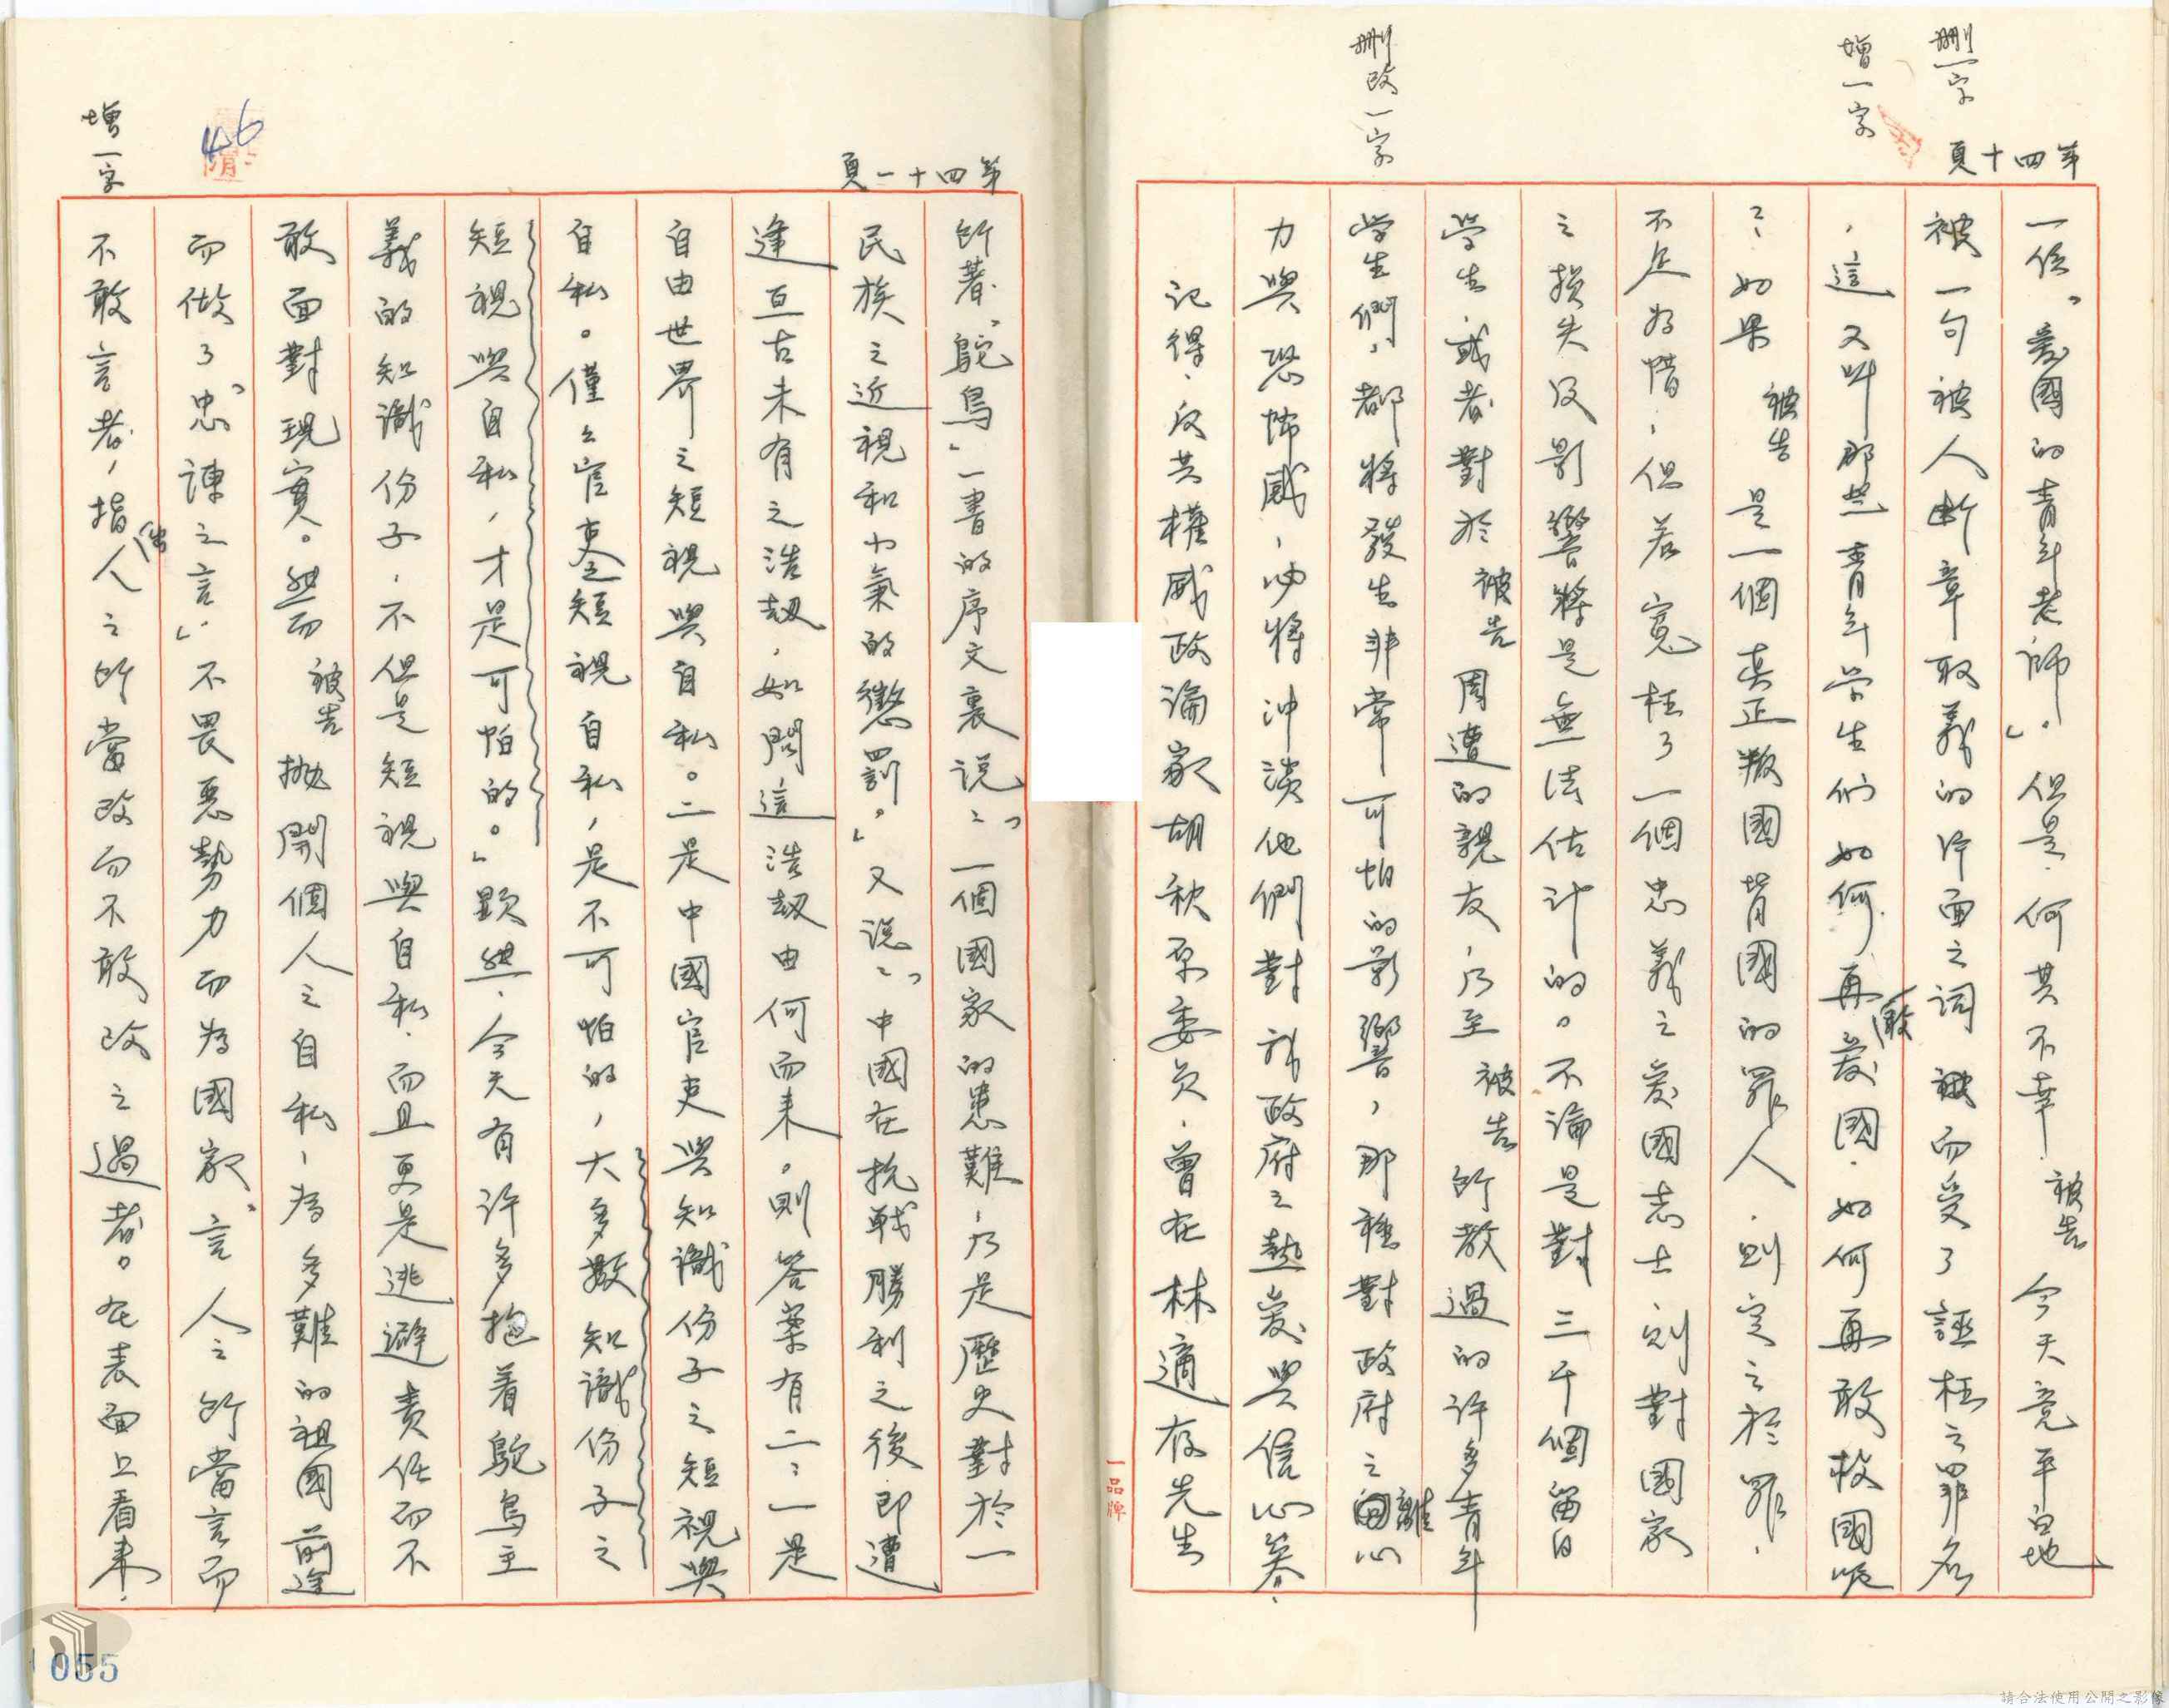 刪一字
增一字
刪改一字
第四十頁
一位「愛國的青年老師」。但是,何其不幸,被告今天竟平白地
被一句被人斷章取義的片面之詞而受了誣枉之罪名
,這又叫那些青年学生们如何再敢愛國,如何再敢救國呢
?如果被告是一個真正叛國背國的罪人,則定之於罪,
不足為惜,但若寃枉了一個忠義之愛國志士,則對國家
之損失及影響將是無法估計的。不論是對三千個留日
学生,或者對於被告周遭的親友,乃至被告所教過的許多青年
学生們,都將發生非常可怕的影響,那種對政府之離心
力與恐怖感,必將沖淡他們對於政府之熱愛與信心等,
記得,反共權威政論家胡秋原委員,曾在林適存先生
第四十一頁
所著「鴕鳥」一書的序文裏說:「一個國家的患難,乃是歷史對於一
民族之近視和小氣的懲罰。」又說:「中國在抗戰勝利之後,即遭
逢亘古未有之浩劫,如問這浩劫由何而來。則答案有二:一是
自由世界之短視與自私。二是中國官吏與知識份子之短視與
自私。僅只官吏之短視自私,是不可怕的,大多數知識份子之
短視與自私,才是可怕的。」顯然,今天有許多抱着鴕鳥主
義的知識份子,不但是短視與自私,而且更是逃避責任而不
敢面對現實。然而被告拋開個人之自私,為多難的祖國前途
而做了「忠諫之言」,不畏惡勢力而為國家,言人之所當言而
不敢言者,指他人之所當改而不敢改之過者。在表面上看來,
增一字
46
055
一品牌
請合法使用公開之影像